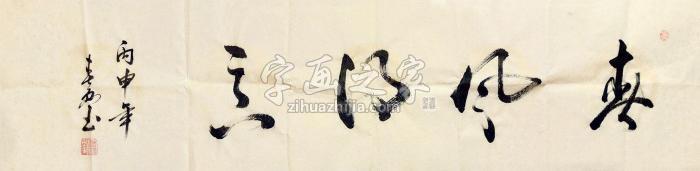 春风得意
丙申年
字画之家
zihuazhijia.com